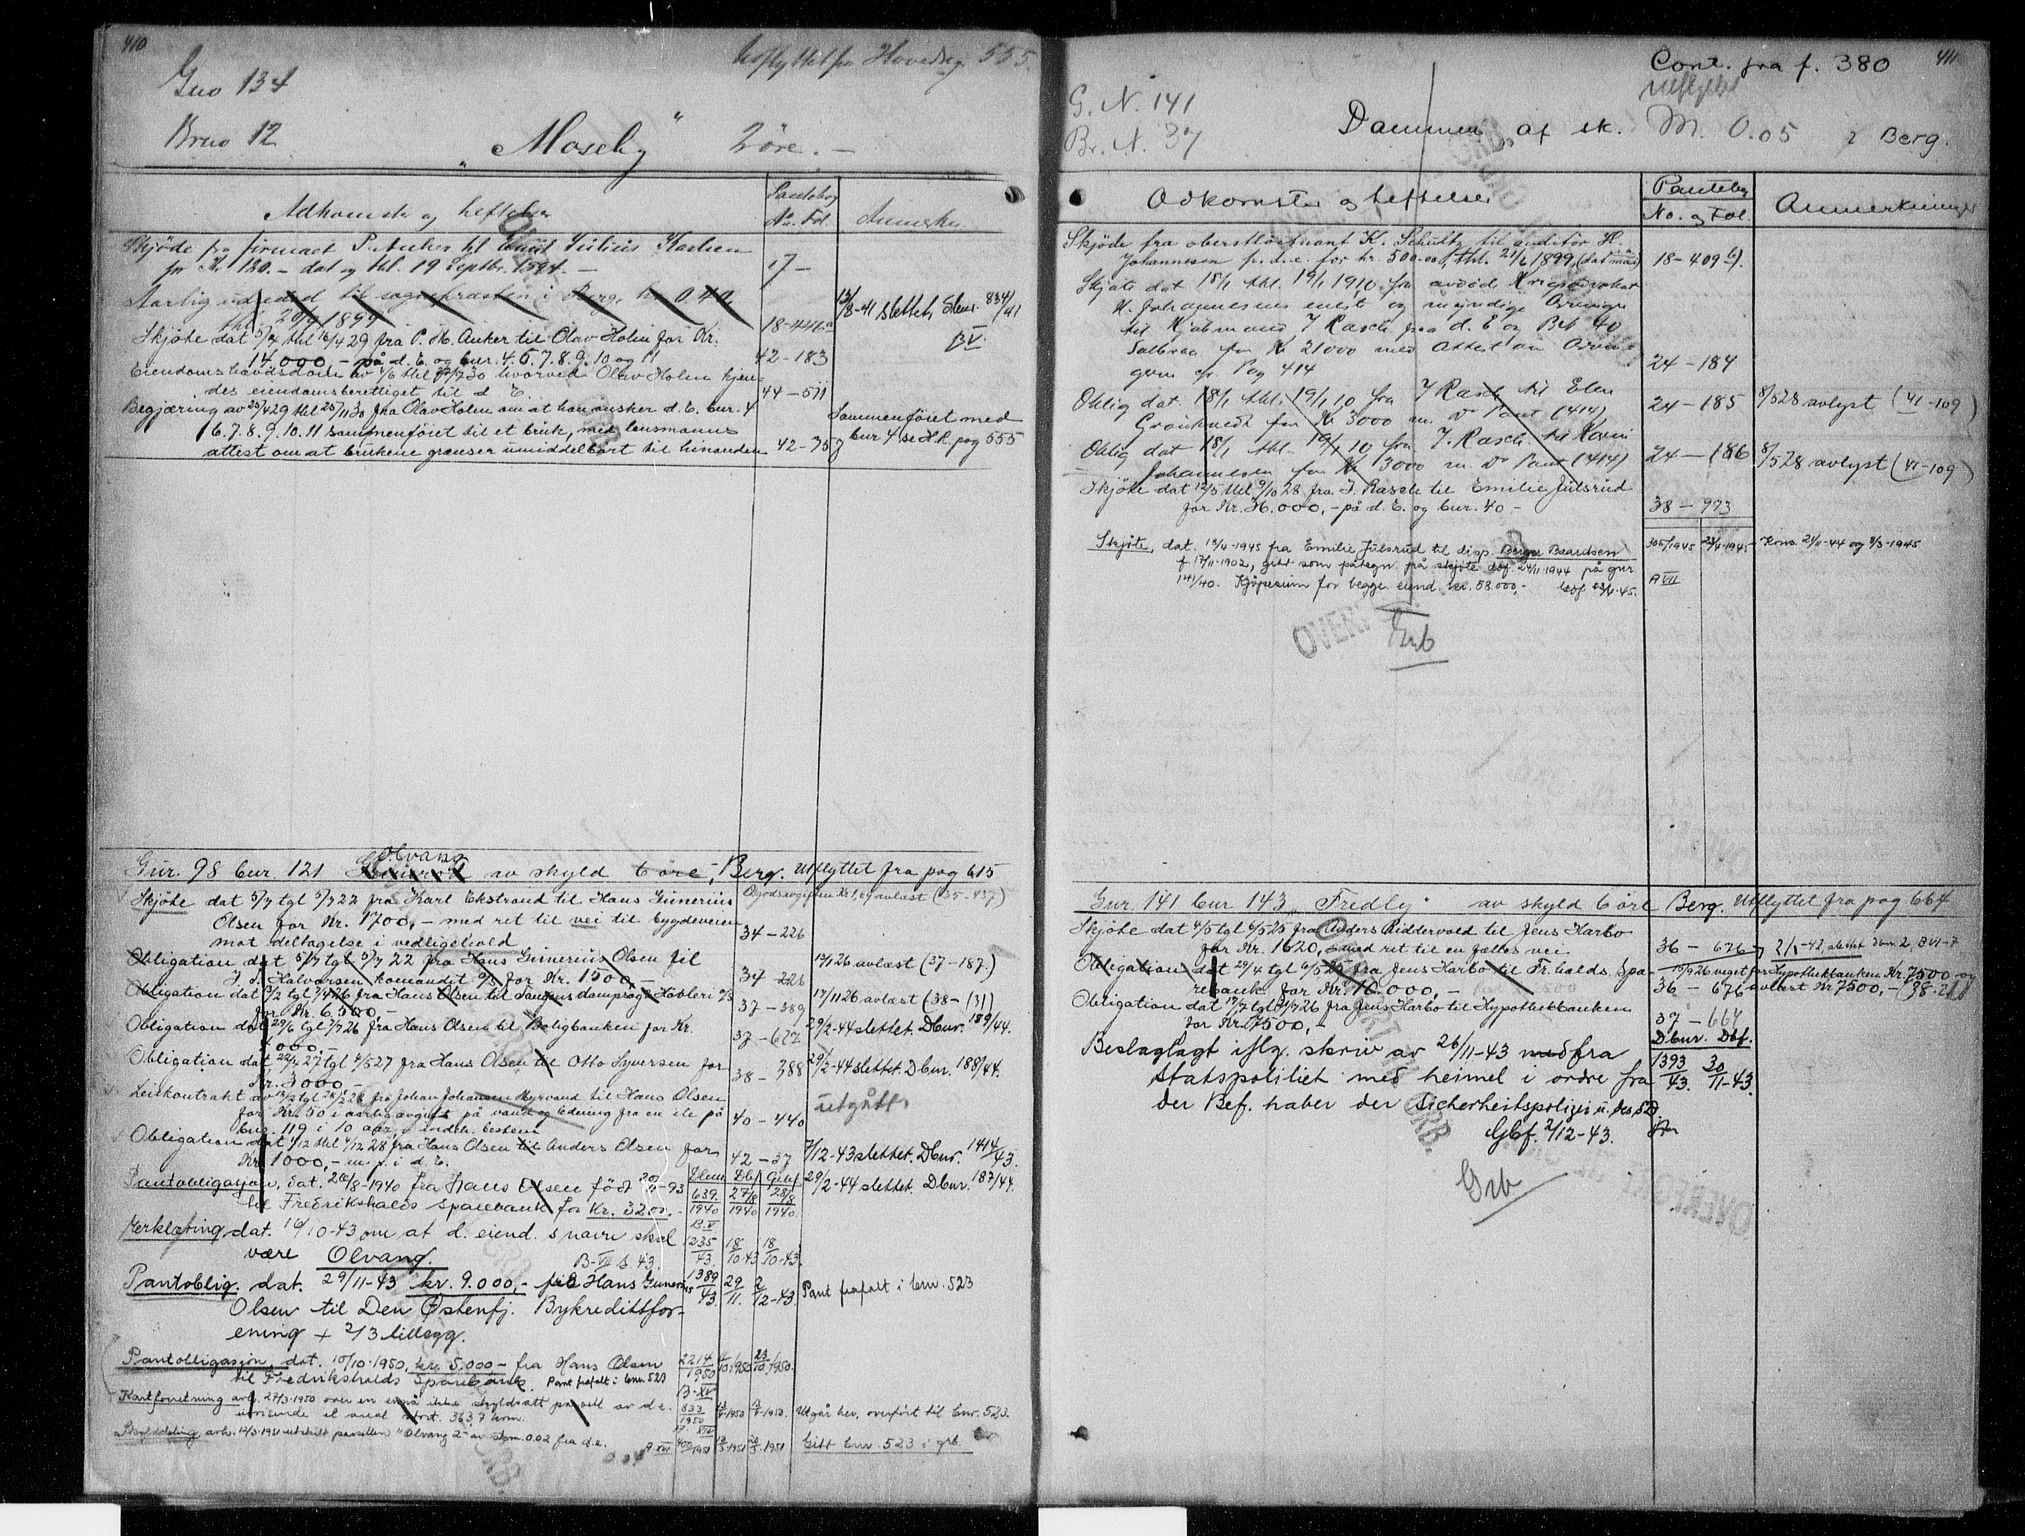 410
Gno 134
Brno 12
"Moseby" 2 öre. —
Utflyttet fra Hovedreg. 555.
Adkomster og heftelser
Pantebog
No. Fol.
Anmerkn.
Skjöde fra firmaet P. Anker til Knut Julius Karlsen
for Kr. 120.- dat og thl. 19 Septbr. 1894. — 17 —
Aarlig udredsel til sognepresten i Berg, kr. 0.40,
thl. 20/9 1899 18-446 13/8-41 slettet, Dbnr. 834/41
BV.
Skjöte dat 5/4 thl 16/4 29 fra P. M. Anker til Olav Holm for Kr.
14.000,- på d. E. og bnr. 4. 6. 7. 8. 9. 10 og 11 42-183
Eiendomshævdsdom av 4/6 thl 27/7 30 hvorved Olav Holm kjen-
des eiendomsberettiget til d E. 44-511
Begjæring av 25/4 29 thl 25/11 30 fra Olav Holm om at han önsker d. E. bnr. 4
6. 7. 8. 9. 10. 11 sammenföiet til et bruk, med lensmanns
attest om at brukene grenser umiddelbart til hinanden 42-35
Sammenföiet med
bnr 4 se H.R. pag 555
Gnr. 98 bnr 121 Olvang av skyld 6 öre, Berg. Utflyttet fra pag 615
Skjöte dat 5/7 tgl 5/7 22 fra Karl Ekstrand til Hans Gunerius
Olsen for Kr. 1700,- med ret til vei til bygdeveien
mot deltagelse i vedlikehold 34-226
Obligation dat 5/7 tgl 5/7 22 fra Hans Gunerius Olsen til
J. A. Halvorsen komandit A/S for Kr. 1500,- 34-226 13/1 26 avlæst (37-187.)
Obligation dat 13/2 tgl 3/4 26 fra Hans Olsen til Saugens dampsag & Høvleri A/S
for Kr. 6500,- 37-389 17/11 26 avlæst (38-131)
Obligation dat 29/6 tgl 3/7 26 fra Hans Olsen til Boligbanken for Kr.
000,- 37-672 29/2-44 slettet. Dbnr. 189/44.
Obligation dat 22/2 27 tgl 4/5 27 fra Hans Olsen til Otto Syversen for
Kr. 3000,- 38-388 29/2-44 slettet. Dbnr. 188/44.
Leiekontrakt av 18/2 tgl 28/2 28 fra Johan Johansen Myrvand til Hans Olsen
for Kr. 50 i aarlig avgift på vand og ledning fra en ile på
bnr. 119 i 10 aar, 40-440 utgått.
Obligation dat 4/12 thl 4/12 28 fra Hans Olsen til Anders Olsen for
Kr. 1000,- m. p. i d. E. 42-37 7/12-43 slettet. Dbnr. 1414/43.
Dbnr Dbf Gjbf
Pantobligasjon, dat. 26/8-1940 fra Hans Olsen født 20/9-93
til Fredrikshalds Sparebank for Kr. 3200.- 639/1940 27/8 1940 28/8 1940. 29/2-44 slettet Dbnr. 187/44.
B.V
Erklæring, dat. 16/10-43 om at d. eiend.s navn skal
være Olvang. B-VII s 43. 1235/43 18/10-43 18/10-43
Pantoblig. dat. 29/11-43 kr. 9.000,- fra Hans Gunerius
Olsen til Den Østenfj. Bykredittfor-
ening + 2/3 tillegg. 1389/43 29/11. 2/12-43 Pant frafalt i bnr. 523
Pantobligasjon, dat. 10/10-1950, kr. 5.000- fra Hans Olsen
til Fredrikshalds Sparebank. Pant frafalt i bnr. 523 2214/1950 11/10-1950 23/10-1950.
B-XV
Kartforretning avh. 27/3-1950 over en ennå ikke skyldsatt parsell av d.e.
utvisende et areal stort. 363,7 kvm. 833/1950 Utgår her, overført til bnr. 523.
Skylddeling avh. 14/3-1951 utskilt parsellen "Olvang 2" av skm. 0.02 fra d.e. A XVI 400/1951 Gitt bnr. 523 i grb
0.04
411
Cont. fra f. 380
utflyttet
G. N. 141
Br. N. 37
Dammen af sk. M. 0.05 i Berg.
Adkomster og heftelser
Pantebog
No. og Fol.
Anmerkninger
Skjöde fra oberstløitnant K. Schultz til auditör H.
Johannesen p. d. e. for kr. 500.00, thl. 21/6 1899, 18-409 b).
Skjöte dat 18/1 thl. 19/1 1910 fra avdöd Krigsadvokat
H. Johannesens enest og myndige Arvinger
til Kjøbmand J Rasch paa d. E og Bno 40
Solbraa for Kr 21000 med Attest om Arvin-
gern cf. Pag 414 24-184
Oblig dat 18/1 thl. 19/1 10 fra J Rasch til Elen
Grönkvedt for Kr 3000 m. Pr Pant (414) 24-185 8/5 28 avlyst (41-109)
Oblig dat 18/1 thl. 19/1 10 fra J. Rasch til Karen
Johannesen for Kr 3000 m. Pr Pant (414) 24-186 8/5 28 avlyst (41-109)
Skjöte dat 12/5 thl 9/10 28 fra J. Rasch til Emilie Julsrud
for Kr. 36.000,- på d. E. og bnr. 40 - 38-973
Skjøte, dat. 13/4-1945 fra Emilie Julsrud til disp. Berger Baardsen
f. 17/11-1902, gitt som påtegn. på skjøte dbf. 24/11-1944 på gnr
141/40. Kjøpesum for begge eiend. kr. 58.000,- 305/1945 23/4-1945 Kons. 21/11-44 og 3/3-1945
A VII
OVERFØRT TIL GRB.
Grb
Gnr. 141 bnr 143 „Fredly" av skyld 6 öre Berg. Utflyttet fra pag 664
Skjöte dat 4/5 tgl 6/5 25 fra Anders Riddervold til Jens Harbo
for Kr. 1620,- med ret til en felles vei 36-676
Obligation dat 29/4 tgl 6/5 25 fra Jens Harbo til Fr.halds Spa-
rebank for Kr. 10.000,- 36-676 avlæst Kr 7500,- (38-211
Obligation dat 17/7 tgl 21/7 26 fra Jens Harbo til Hypothekbanken
for Kr. 7500,- 37-667
Dbnr. Dbf.
Beslaglagt iflg. skriv av 26/11-43 fra
Statspolitiet med heimel i ordre fra
der Bef. haber der Sicherheitspolizei u. des SD.
Gbf. 2/12-43. 1393/43 30/11-43
Grb
OVERFØRT TIL GRB.